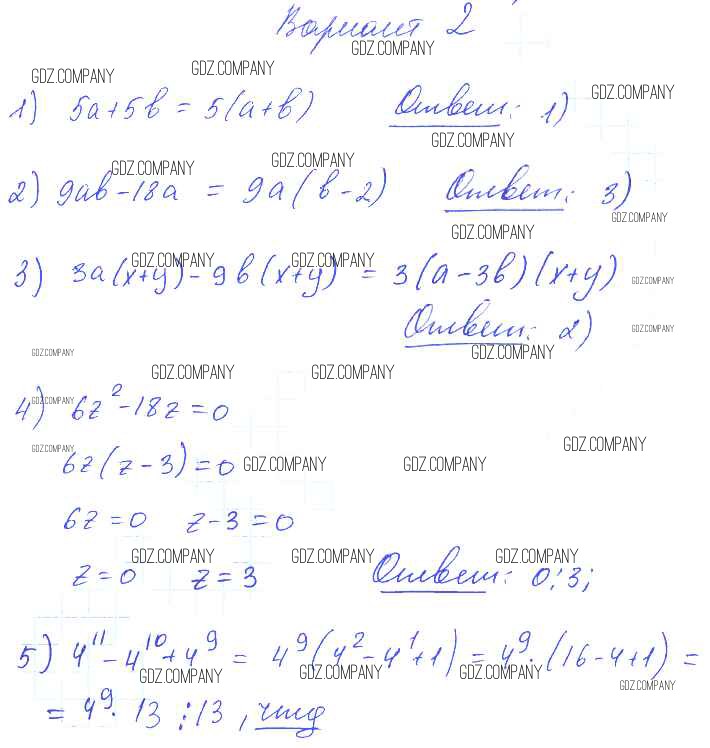 Вариант 2
GDZ.COMPANY
GDZ.COMPANY GDZ.COMPANY
GDZ.COMPANY
1) 5a+5b = 5(a+b) Ответ: 1)
GDZ.COMPANY
GDZ.COMPANY GDZ.COMPANY
2) 9ab-18a = 9a(b-2) Ответ: 3)
GDZ.COMPANY
GDZ.COMPANY
GDZ.COMPANY GDZ.COMPANY
3) 3a(x+y)-9b(x+y) = 3(a-3b)(x+y)
GDZ.COMPANY
Ответ: 2)
GDZ.COMPANY
GDZ.COMPANY GDZ.COMPANY
GDZ.COMPANY GDZ.COMPANY
GDZ.COMPANY
4) 6z²-18z=0
GDZ.COMPANY GDZ.COMPANY
6z(z-3)=0
GDZ.COMPANY GDZ.COMPANY
6z=0 z-3=0
GDZ.COMPANY GDZ.COMPANY GDZ.COMPANY
z=0 z=3 Ответ: 0;3;
5) 4¹¹-4¹⁰+4⁹ = 4⁹(4²-4¹+1) = 4⁹·(16-4+1) =
GDZ.COMPANY GDZ.COMPANY GDZ.COMPANY GDZ.COMPANY
= 4⁹·13 ⋮13, чтд